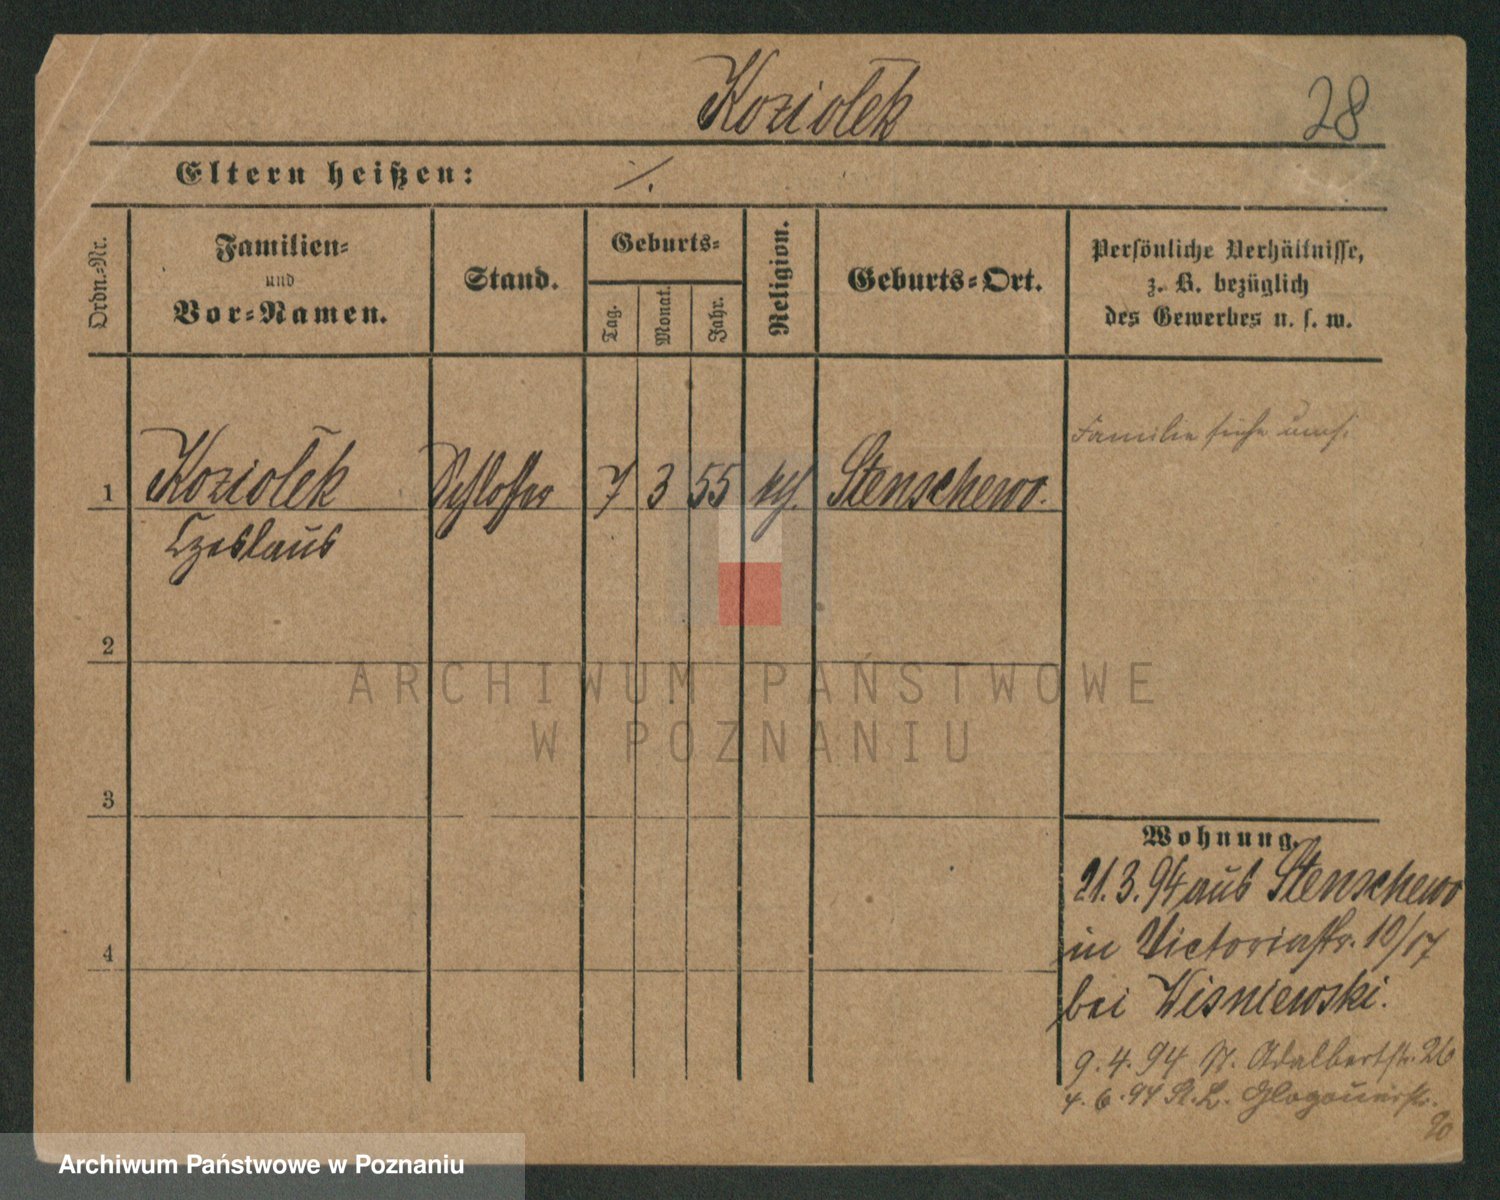 Koziołek
28
Eltern heißen: ./.
Ordn.-Nr.
Familien-
und
Vor-Namen.
Stand.
Geburts-
Tag.
Monat.
Jahr.
Religion.
Geburts-Ort.
Persönliche Verhältnisse,
z. B. bezüglich
des Gewerbes u. s. w.
Familie siehe
1 Koziołek Schlosser 7 3 55 kth. Stenschewo.
Czeslaus
2
3
4
Wohnung.
21.3.94 aus Stenschewo
in Victoriastr. 10/17
bei Wisniewski.
9.4.94 N. Adalbertstr. 26
4.6.94 St. L. Glogauerstr.
ARCHIWUM PAŃSTWOWE
W POZNANIU
Archiwum Państwowe w Poznaniu